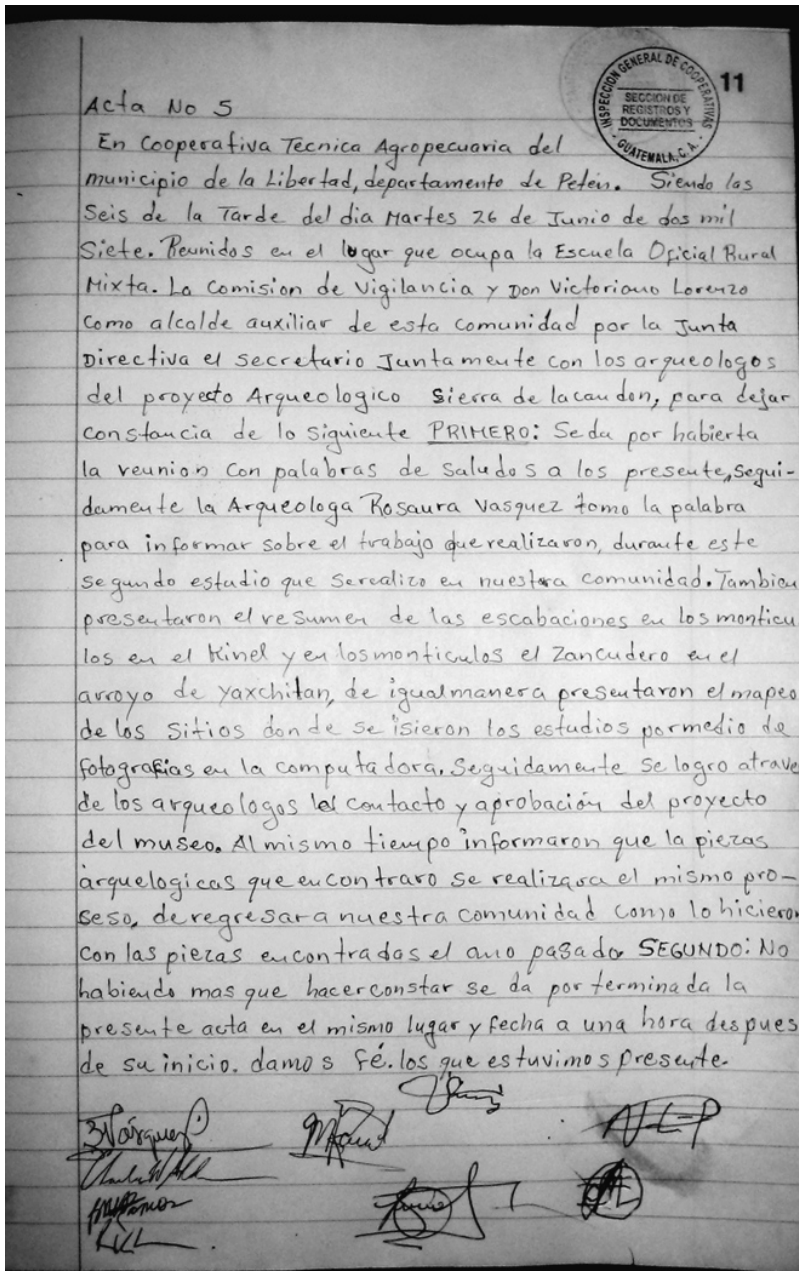 11
INSPECCION GENERAL DE COOPERATIVAS
SECCION DE
REGISTROS Y
DOCUMENTOS
GUATEMALA, C. A.
Acta No 5
En Cooperativa Tecnica Agropecuaria del
municipio de la Libertad, departamento de Petén. Siendo las
Seis de la Tarde del dia Martes 26 de Junio de dos mil
Siete. Reunidos en el lugar que ocupa la Escuela Oficial Rural
Mixta. La Comision de Vigilancia y Don Victoriano Lorenzo
Como alcalde auxiliar de esta comunidad por la Junta
Directiva el secretario Juntamente con los arqueologos
del proyecto Arqueologico Sierra de lacandon, para dejar
constancia de lo siguiente PRIMERO: Se da por habierta
la reunion con palabras de saludos a los presente, segui-
damente la Arqueologa Rosaura Vasquez tomo la palabra
para informar sobre el trabajo que realizaron, durante este
segundo estudio que se realizo en nuestra comunidad. Tambien
presentaron el resumen de las escabaciones en los monticu
los en el Kinel y en los monticulos el Zancudero en el
arroyo de yaxchitan, de igual manera presentaron el mapeo
de los sitios donde se isieron los estudios por medio de
fotografias en la computadora. Seguidamente se logro atrave
de los arqueologos el contacto y aprobación del proyecto
del museo. Al mismo tiempo informaron que la piezas
arquelogicas que encontraro se realizara el mismo pro-
seso, de regresar a nuestra comunidad como lo hicieron
con las piezas encontradas el ano pasado. SEGUNDO: No
habiendo mas que hacer constar se da por terminada la
presente acta en el mismo lugar y fecha a una hora despues
de su inicio. damos fé. los que estuvimos presente.
Vásquez